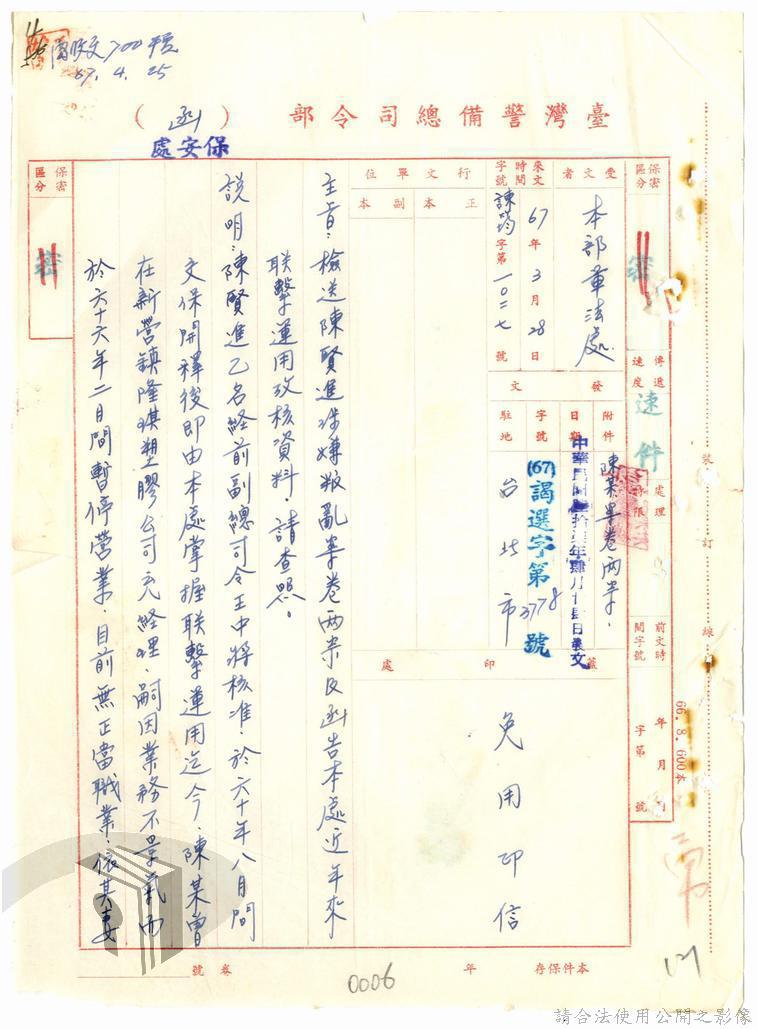 崗收文700號
67.4.25
臺灣警備總司令部（函）
保安處
保密區分
密
傳遞速度
速件
處理時限
前文時間字號
年 月 日
字第 號
受文者
本部軍法處
來文時間
67年3月28日
字號
諫筠字第一〇二七號
行文單位
正本
副本
發文
附件
陳某案卷兩宗.
日期
中華民國陸拾柒年肆月廿肆日發文
字號
(67)謁選字第3778號
駐地
台北市
蓋印處
免用印信
保密區分
密
主旨：檢送陳賢進涉嫌叛亂案卷兩宗及函告本處近年來
联擊運用攷核資料，請查照。
說明：陳賢進乙名経前副總司令王中將核准，於六十年八月間
交保開釋後即由本處掌握联擊運用迄今，陳某曾
在新營鎮隆琪塑膠公司充経理，嗣因業務不景氣而
於六十六年二月間暫停營業，目前無正當職業，依其妻
裝訂線
66.8.600本
本件保存 年
卷號
0006
121
請合法使用公開之影像